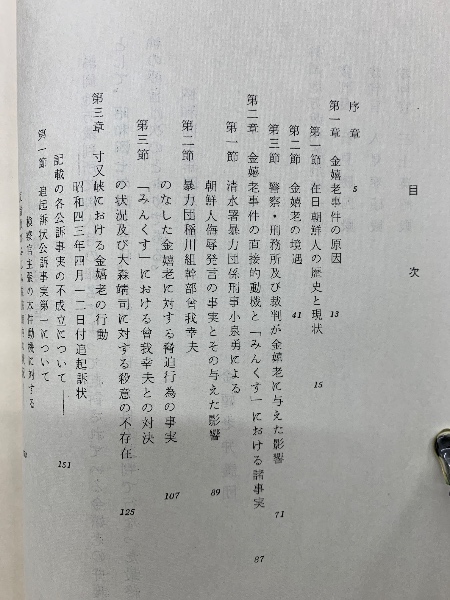 目次
序章 5
第一章 金嬉老事件の原因 13
第一節 在日朝鮮人の歴史と現状 15
第二節 金嬉老の境遇 41
第三節 警察・刑務所及び裁判が金嬉老に与えた影響 71
第二章 金嬉老事件の直接的動機と「みんくす」における諸事実 87
第一節 清水署暴力団係刑事小泉勇による
朝鮮人侮辱発言の事実とその与えた影響 89
第二節 暴力団稲川組幹部曾我幸夫
のなした金嬉老に対する脅迫行為の事実 107
第三節 「みんくす」における曾我幸夫との対決
の状況及び大森靖司に対する殺意の不存在 125
第三章 寸又峡における金嬉老の行動
昭和四三年四月一二日付追起訴状
記載の各公訴事実の不成立について―― 151
第一節 追起訴状公訴事実第一について
検察官主張の本件動機に対する